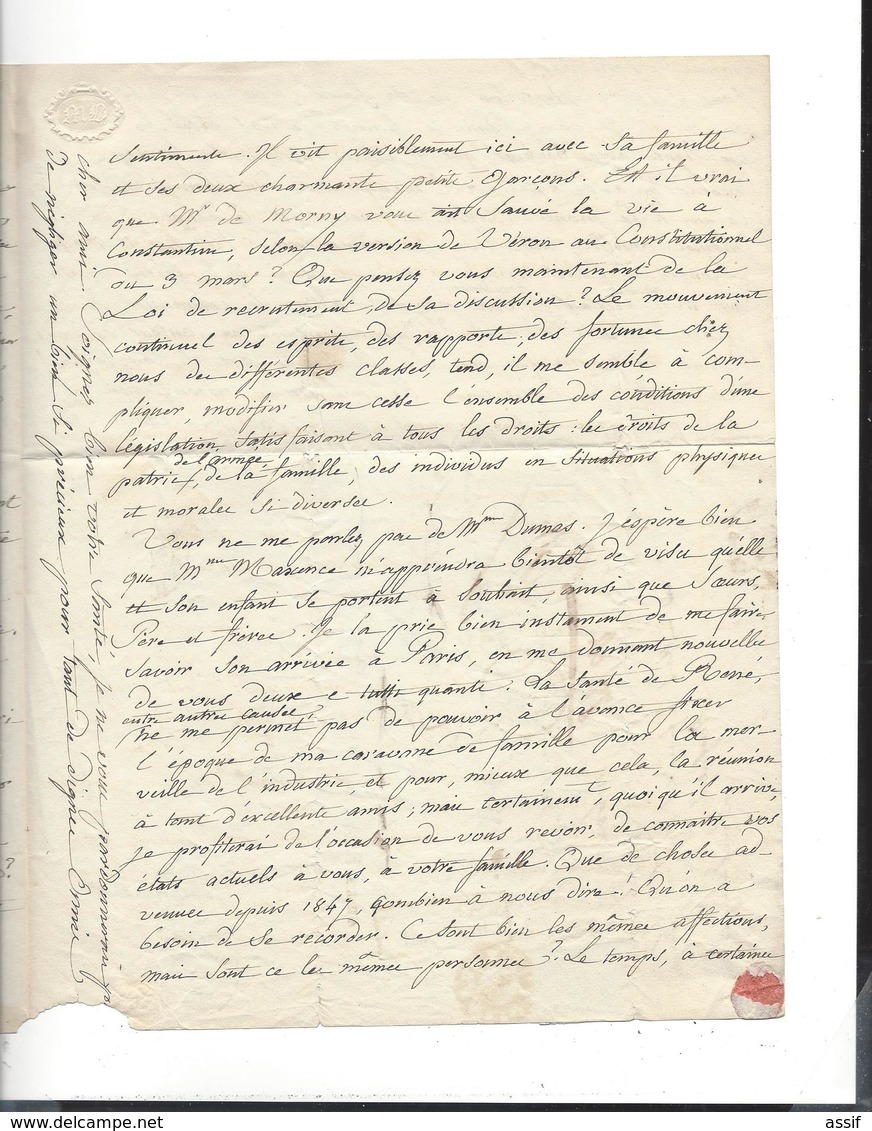 MD
sentiments. Il vit paisiblement ici avec sa famille
et ses deux charmants petits garçons. Est il vrai
que Mr de Morny vous ait sauvé la vie à
Constantine, selon la version de Véron au Constitutionnel
du 3 mars? Que pensez vous maintenant de la
Loi de recrutement, de sa discussion? Le mouvement
continuel des esprits, des rapports, des fortunes chez
nous des différentes classes, tend, il me semble à com-
pliquer, modifier sans cesse l'ensemble des conditions d'une
législation, satisfaisant à tous les droits: les droits de la
de l'armée
patrie, de la famille, des individus en situations physiques
et morales si diverses.
Vous ne me parlez pas de Mme Dumas. J'espère bien
que Mme Maxence m'apprendra bientôt de visu qu'elle
et son enfant se portent à souhait, ainsi que sœurs,
Père et frères. Je la prie bien instament de me faire
savoir son arrivée à Paris, en me donnant nouvelles
de vous deux e tutti quanti. La santé de René,
entre autres causes,
ne me permet pas de pouvoir à l'avance fixer
l'époque de ma caravane de famille pour la mer-
veille de l'industrie, et pour, mieux que cela, la réunion
à tant d'excellents amis; mais certainemt, quoiqu'il arrive,
je profiterai de l'occasion de vous revoir, de connaitre vos
états actuels à vous, à votre famille. Que de choses ad-
venues depuis 1847, combien à nous dire! Qu'on a
besoin de se recorder. Ce sont bien les mêmes affections,
mais sont ce les mêmes personnes? Le temps, à certaines
cher ami. Soignez bien votre santé, je ne vous pardonnerais pas
de négliger un bien si précieux pour tant de dignes amis
assif